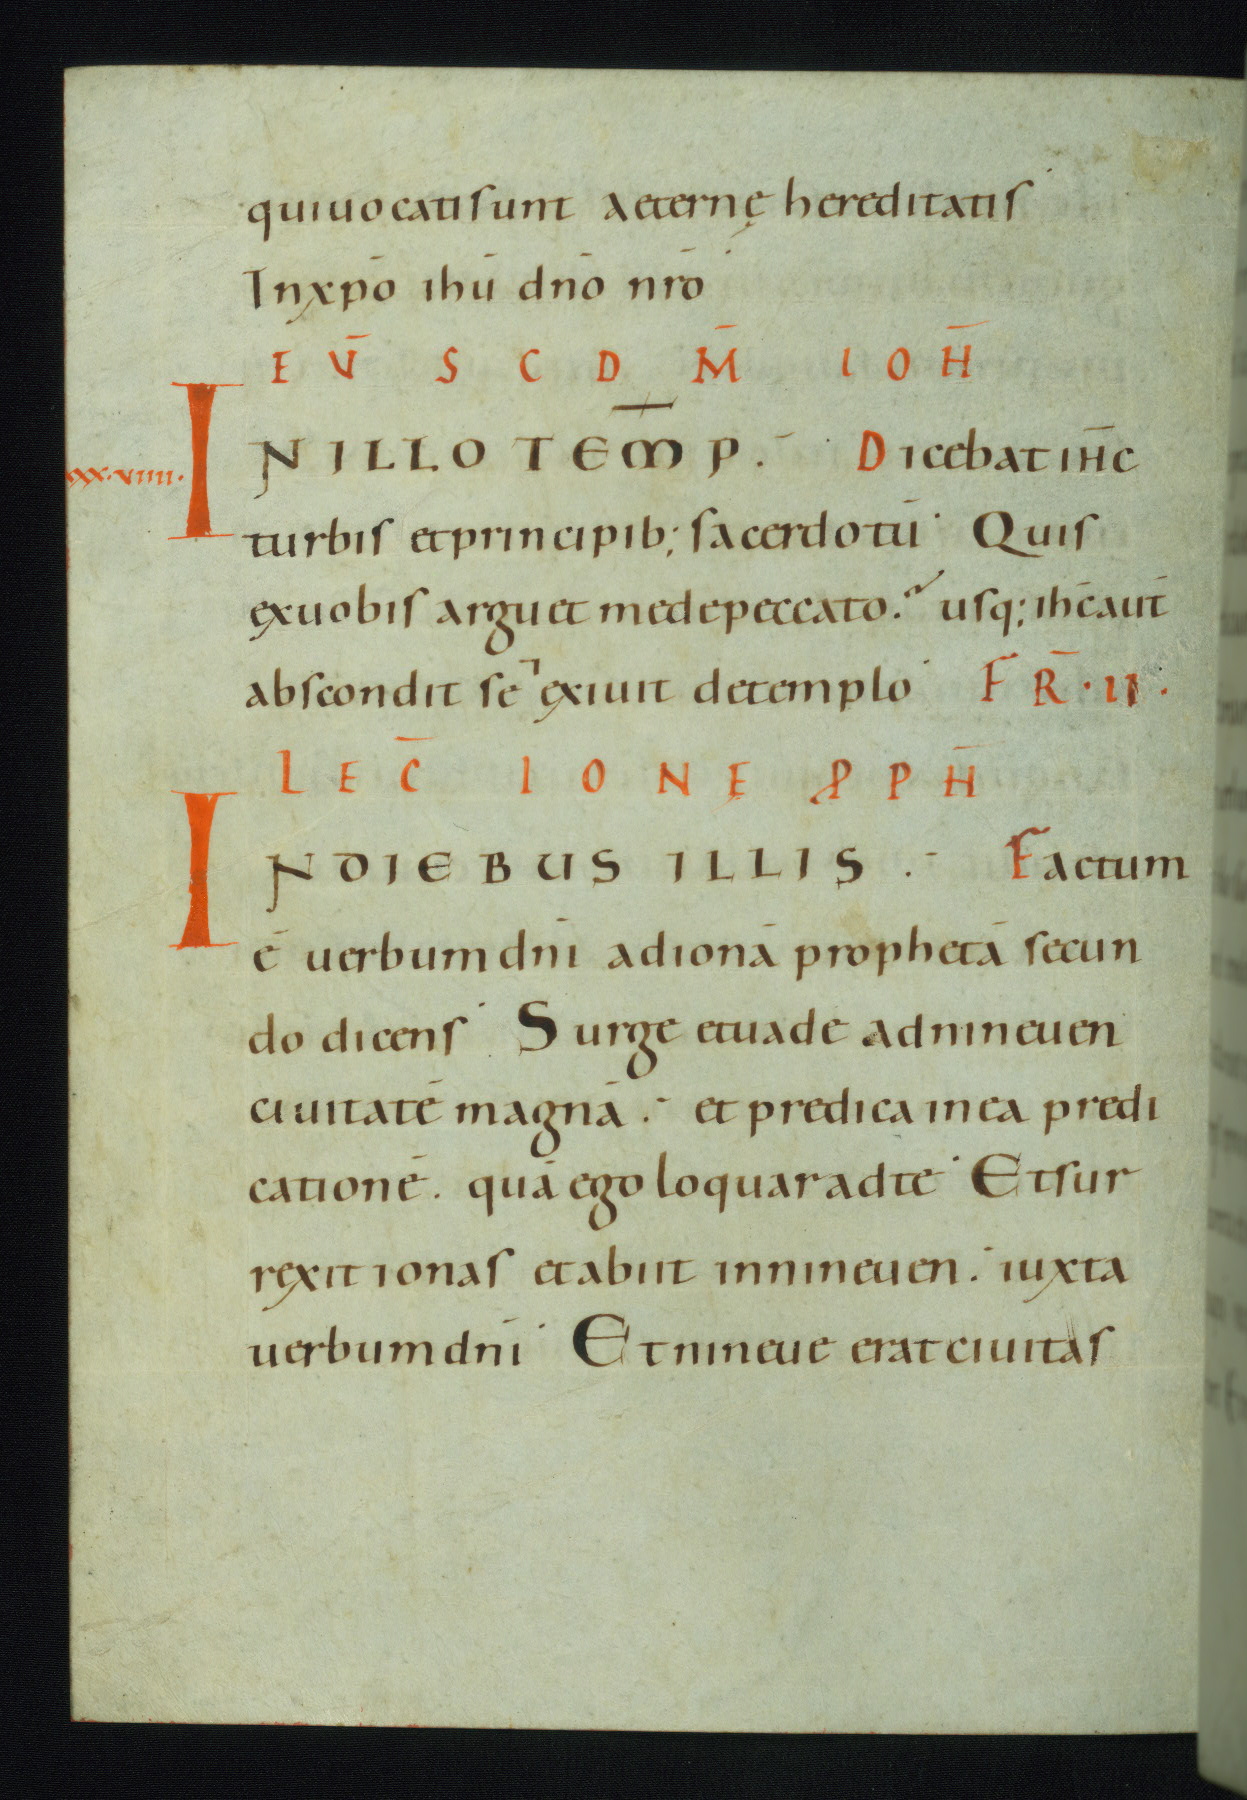 quiuocatisunt aeternę hereditatis
Inxpō ihū dnō nrō
EV̄ SCD M̄ IOH̄
INILLO TEM̄P. Dicebat ih̄c
xx·viiii·
turbis etprincipib; sacerdotū Quis
exuobis arguet medepeccato. usq; ihc̄aut̄
abscondit se exiuit detemplo FR̄·II·
LEC̄ IONĘ PPH̄
INDIEBUS ILLIS . Factum
ē uerbumdn̄i adionā prophetā secun
do dicens Surge etuade adnineuen
ciuitatē magnā. et predica inea predi
cationē. quā ego loquaradte Etsur
rexit ionas etabiit innineuen. iuxta
uerbumdn̄i Etnineue eratciuitas